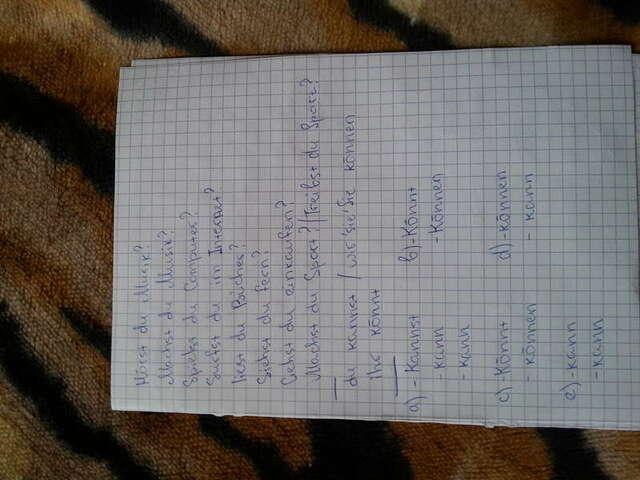 Hörst du Musik?
Machst du Musik?
Spielst du Computer?
Suchst du im Internet?
Liest du Bücher?
Siehst du fern?
Gehst du einkaufen?
Machst du Sport? / Treibst du Sport?
du kannst / wir 'sie' Sie können
ihr könnt
a) - Kannst
- kann
- kann
b) - Könnt
- Können
c) - Könnt
- können
d) - können
- kann
e) - kann
- kann